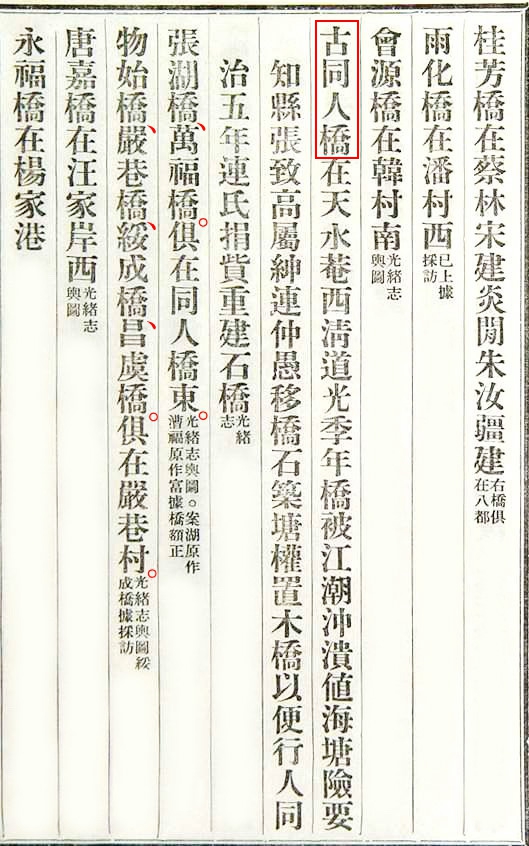 桂芳橋在蔡林宋建炎閒朱汝疆建右橋俱
在八都
雨化橋在潘村西已上據
採訪
會源橋在韓村南光緒志
輿圖
古同人橋在天水菴西淸道光季年橋被江潮沖潰値海塘險要
知縣張致高屬紳連仲愚移橋石築塘權置木橋以便行人同
治五年連氏捐貲重建石橋光緒
志
張湖橋、萬福橋。俱在同人橋東。光緒志輿圖。案湖原作
漕福原作富據橋額正
物始橋、嚴巷橋、綏成橋、昌虞橋。俱在嚴巷村。光緒志輿圖綏
成橋據採訪
唐嘉橋在汪家岸西光緒志
輿圖
永福橋在楊家港